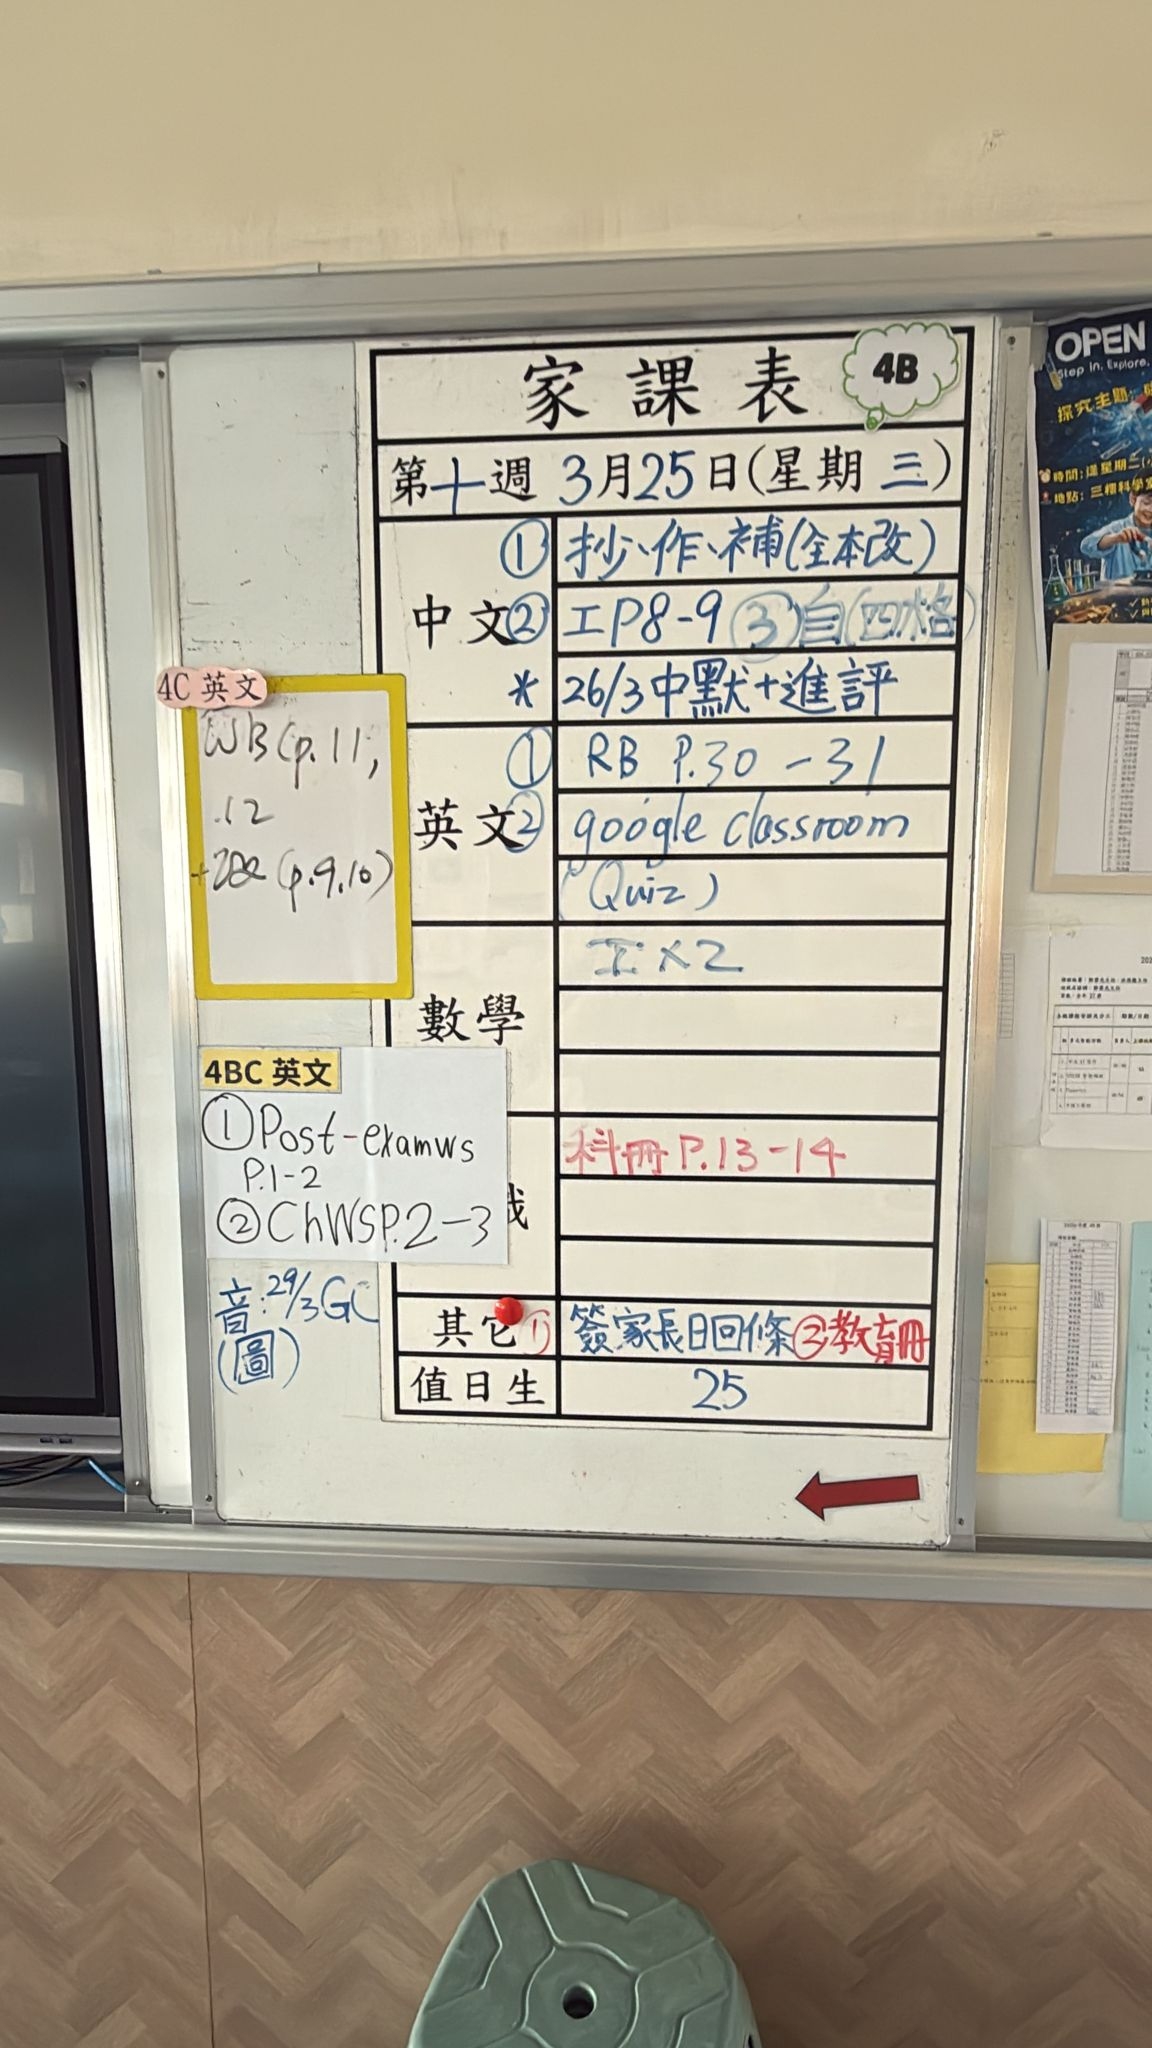 家課表
4B
第十週 3月25日(星期三)
中文
① 抄、作、補(全本改)
② 工P8-9 ③自(四格)
* 26/3中默+進評
英文
① RB P.30-31
② google classroom
(Quiz)
數學
工×2
科冊 P.13-14
其它
① 簽家長日回條 ②教育冊
值日生
25
4C 英文
WB(p.11,
12
(p.9,10)
4BC 英文
①Post-examws
P.1-2
②ChWSP.2-3
音:29/3GC
(圖)
OPEN
Step In. Explore.
探究主題:
時間:逢星期二
地點:三樓科學室